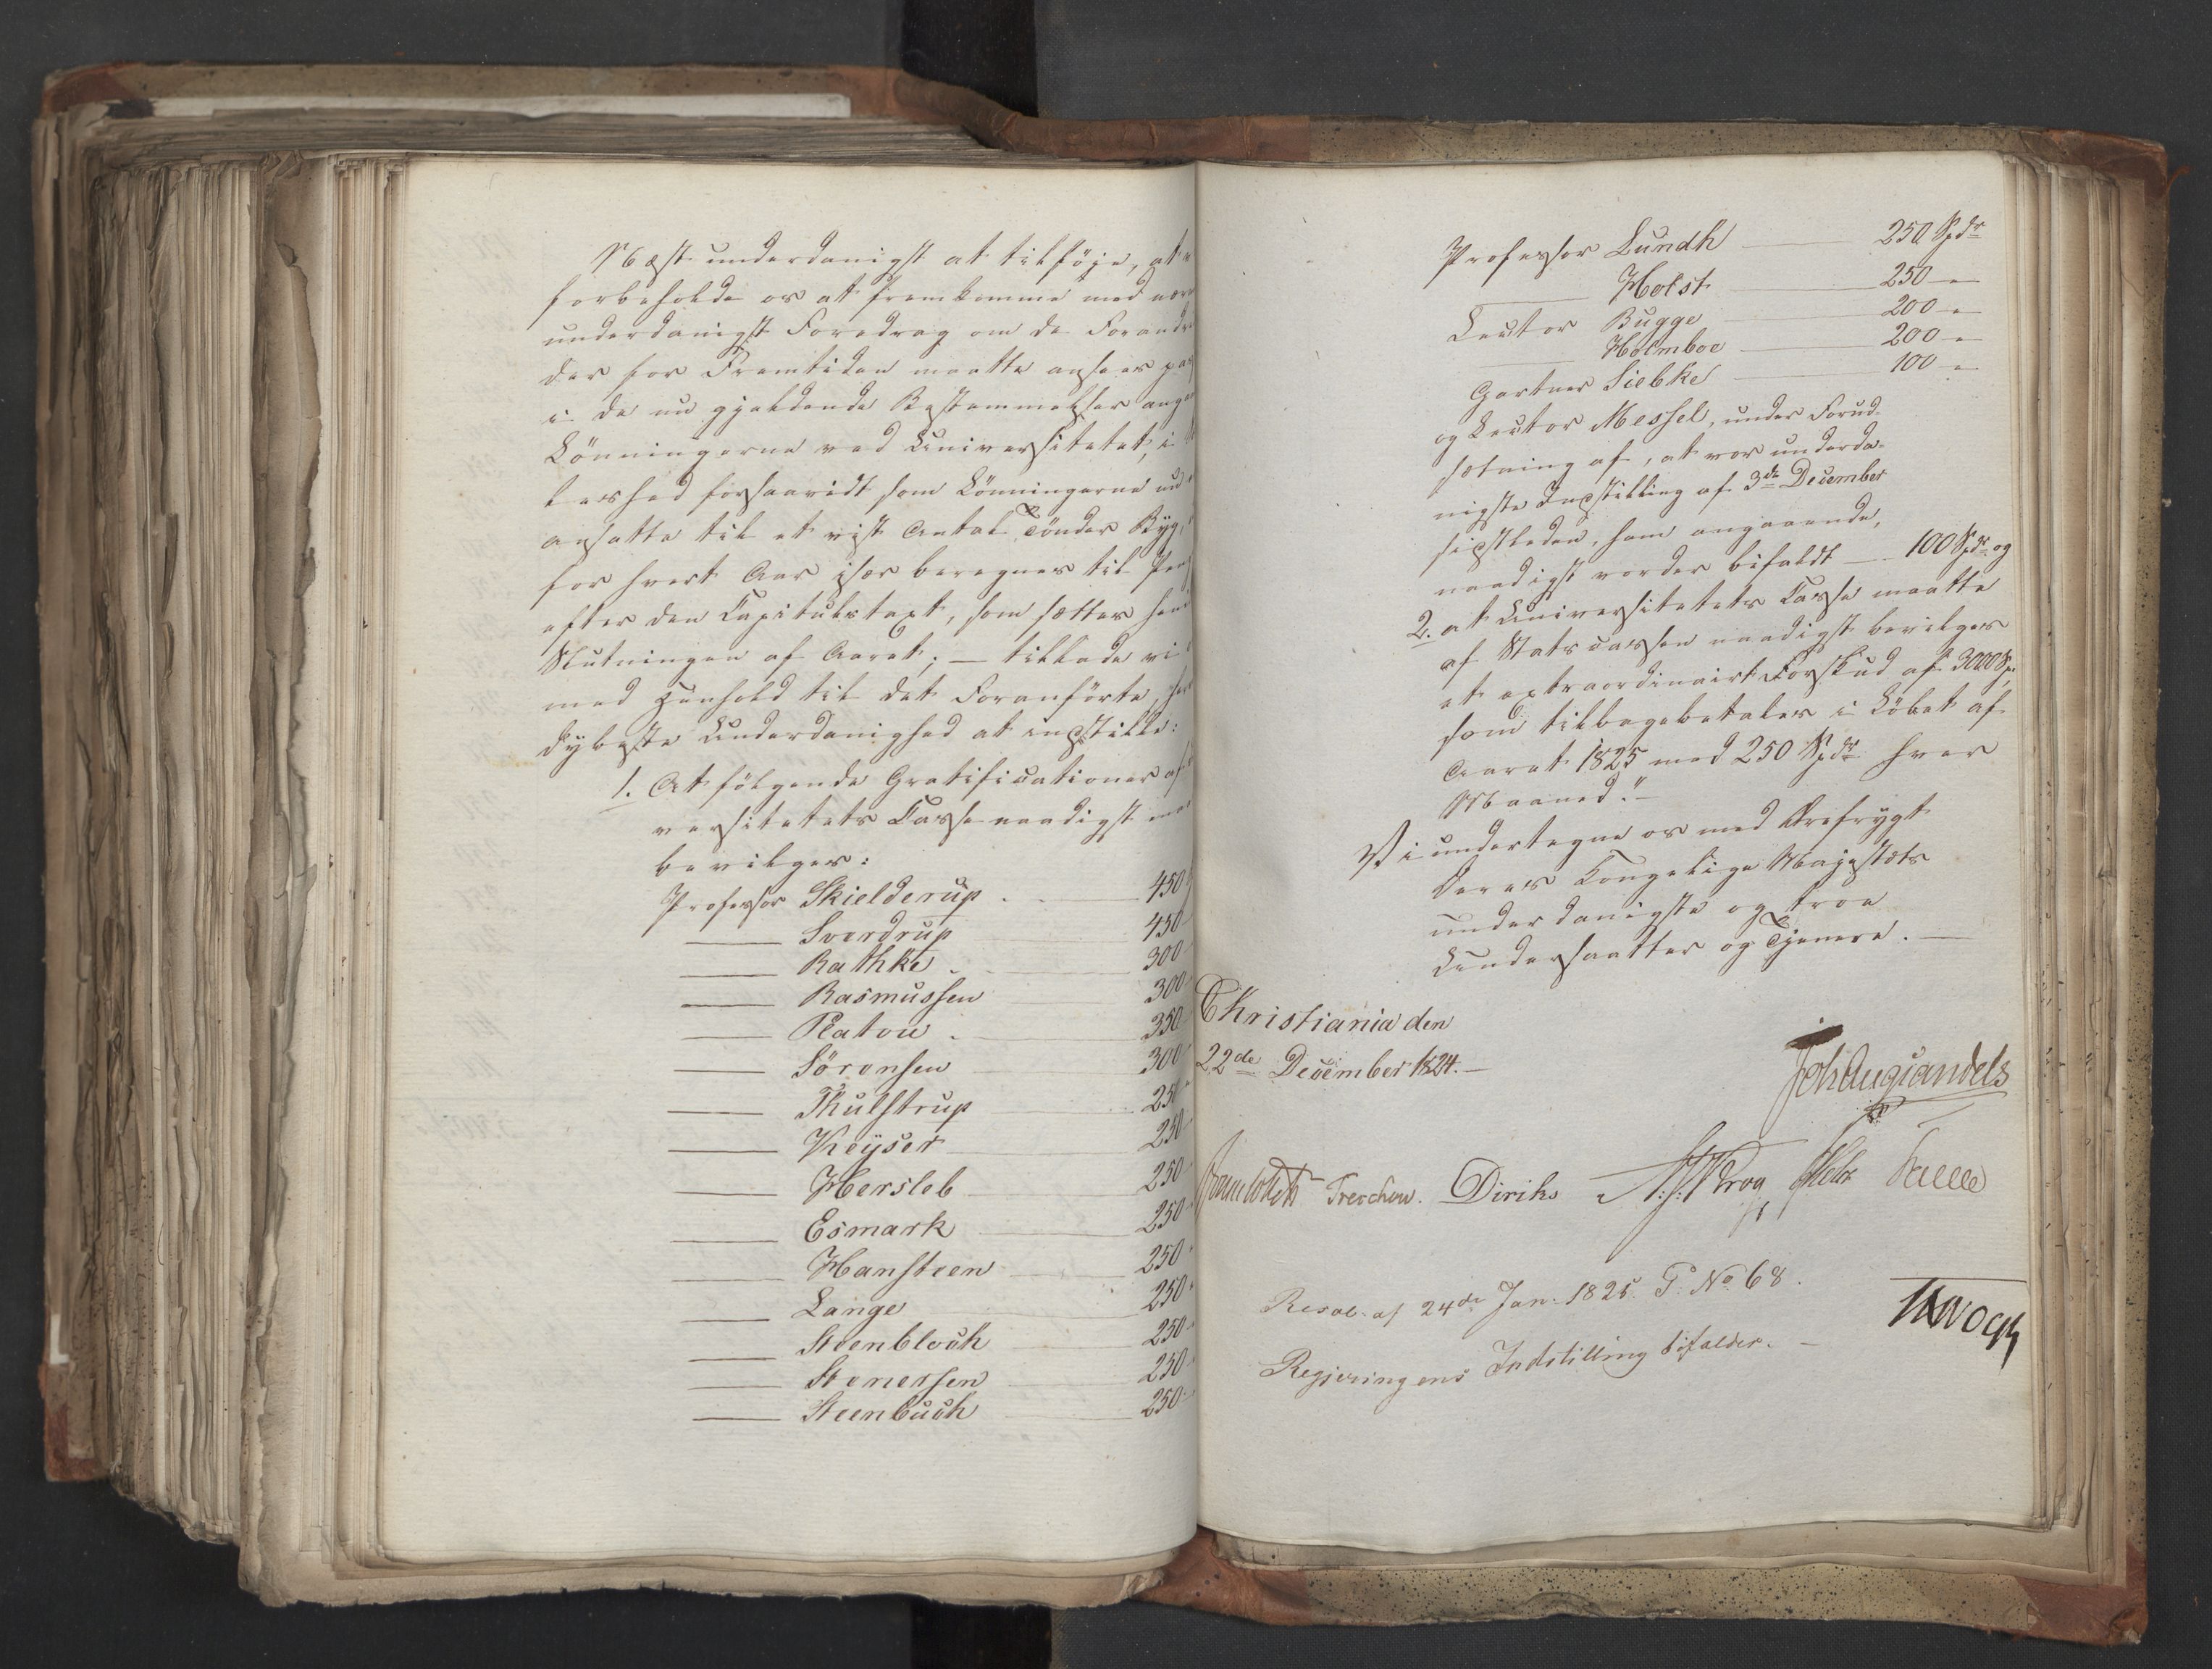 Næst underdanigst at tilföje, at
forbeholde os at fremkomme med
underdanigst Foredrag om de
der for Fremtiden maatte ansees
i de nu gjældende Bestemmelser
Lönningerne ved Universitetet, i
forsaavidt som Lönningerne
ansatte til et vist Antal Tönder Byg,
for hvert Aar især beregnes til
efter den Capitulstaxt, som sættes
Slutningen af Aaret; — tillade vi
med Henhold til det Foranförte,
dybeste Underdanighed at indstille:
1. At fölgende Gratificationer af
versitetets Casse naadigst
bevilges:
Professor Skielderup . . — 450
— Sverdrup — 450
— Rathke . — 300
— Rasmussen — 300
— Platou . — 350
— Sörensen — 300
— Thulstrup — 250
— Keyser — 250
— Hersleb — 250
— Esmark — 250
— Hansteen — 250
— Lange — 250
— Steenbloch — 250
— Stenersen — 250
— Steenbuch — 250
Professor Lundh — 250 Spdr
— Holst — 250 —
Lector Bugge — 200 —
— Holmboe — 200 —
Gartner Siebke — 100 —
og Lector Messel, under Forud-
sætning af, at vor underda-
nigste Indstilling af 3de December
sidstleden, ham angaaende,
naadigst vorder bifaldt — 100 Spdr og
2. at Universitetets Casse maatte
af Statscassen naadigst bevilges
et extraordinairt Forskud af 3000 Sp,
som tilbagebetales i Löbet af
Aaret 1825 med 250 Spdr hver
Maaned." —
Vi undertegne os med Ærefrygt
Deres Kongelige Majestæts
underdanigste og troe
Undersaatter og Tjenere. —
Christiania den
22de December 1824. —
Joh Aug Sandels
Treschow. Diriks Krog Falbe
Resol. af 24de Jan. 1825. P. No 68.
Regjeringens Indstilling bifaldes. —
Vogt